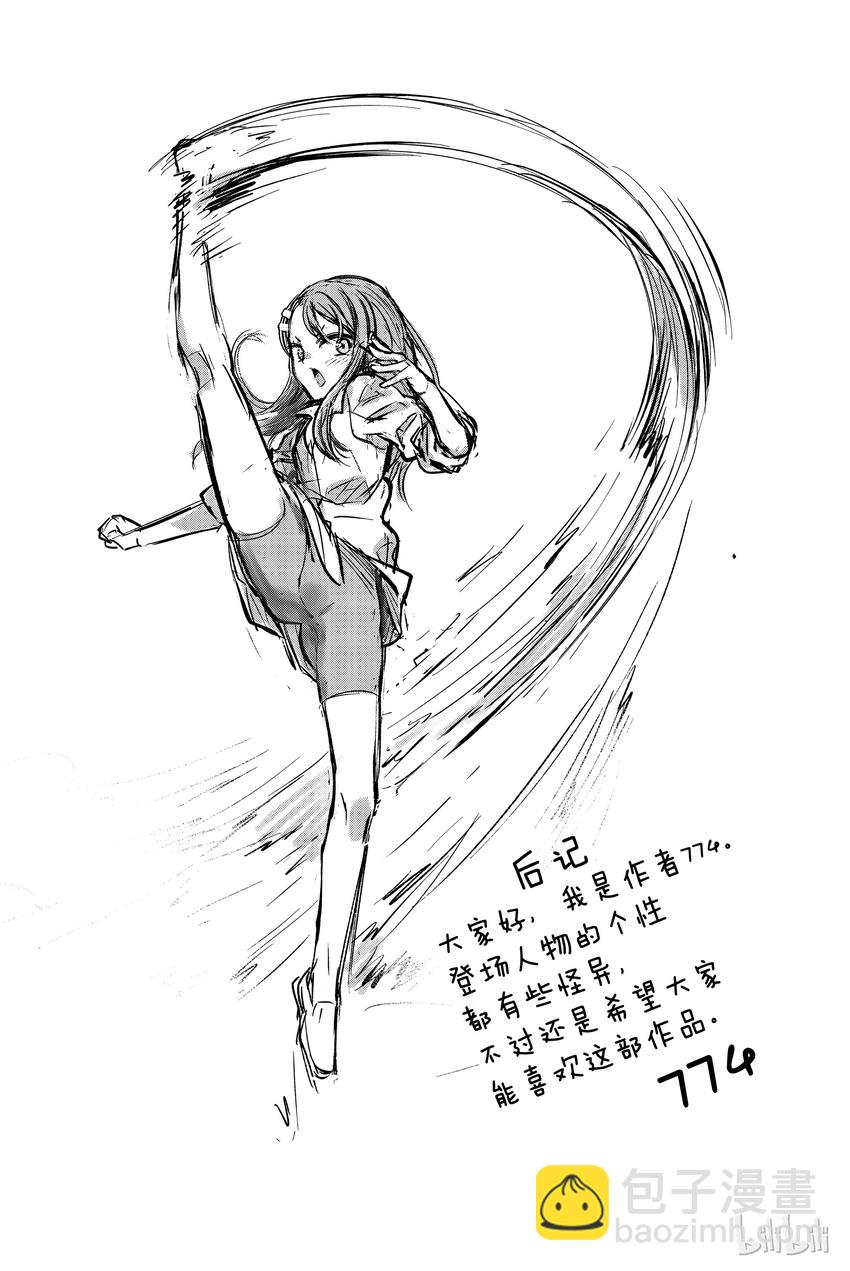 后记
大家好，我是作者774。
登场人物的个性
都有些怪异，
不过还是希望大家
能喜欢这部作品。
774
包子漫畫
baozimh.com
bilibili